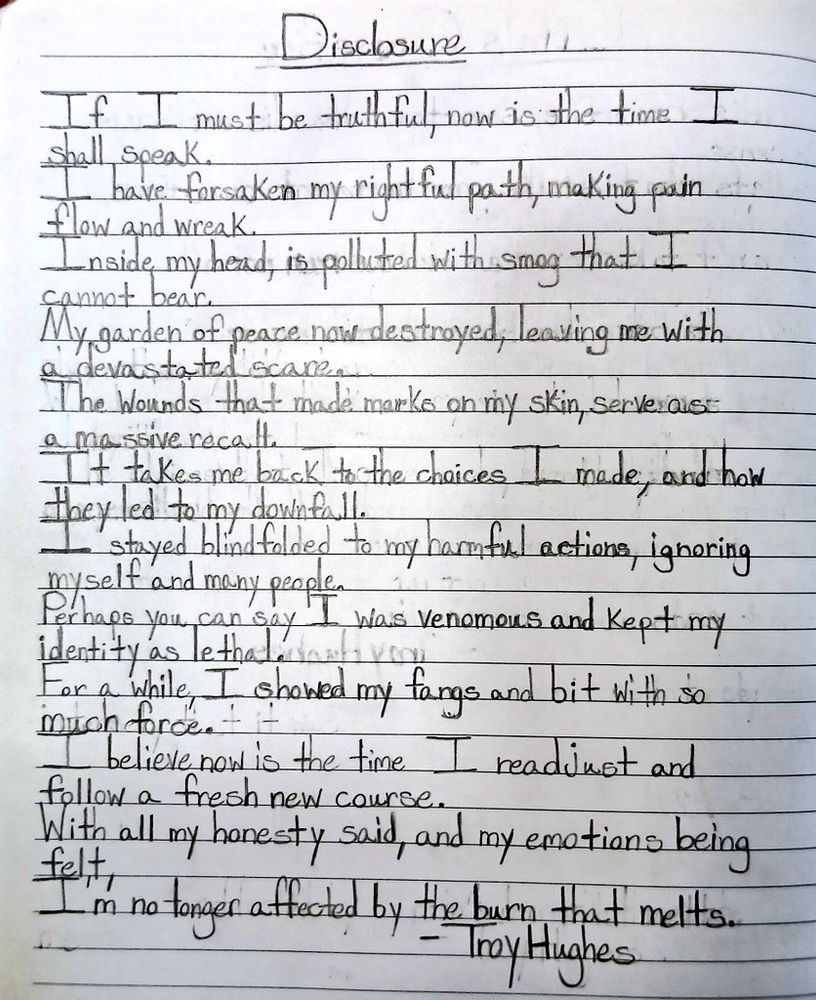 Disclosure
If I must be truthful, now is the time I
shall speak.
I have forsaken my rightful path, making pain
flow and wreak.
Inside my head, is polluted with smog that I
cannot bear.
My garden of peace now destroyed, leaving me with
a devastated scare.
The Wounds that made marks on my skin, serve as
a massive recall.
It takes me back to the choices I made, and how
they led to my downfall.
I stayed blindfolded to my harmful actions, ignoring
myself and many people.
Perhaps you can say I was venomous and kept my
identity as lethal.
For a while, I showed my fangs and bit with so
much force.
I believe now is the time I readjust and
follow a fresh new course.
With all my honesty said, and my emotions being
felt,
I'm no longer affected by the burn that melts.
- Troy Hughes